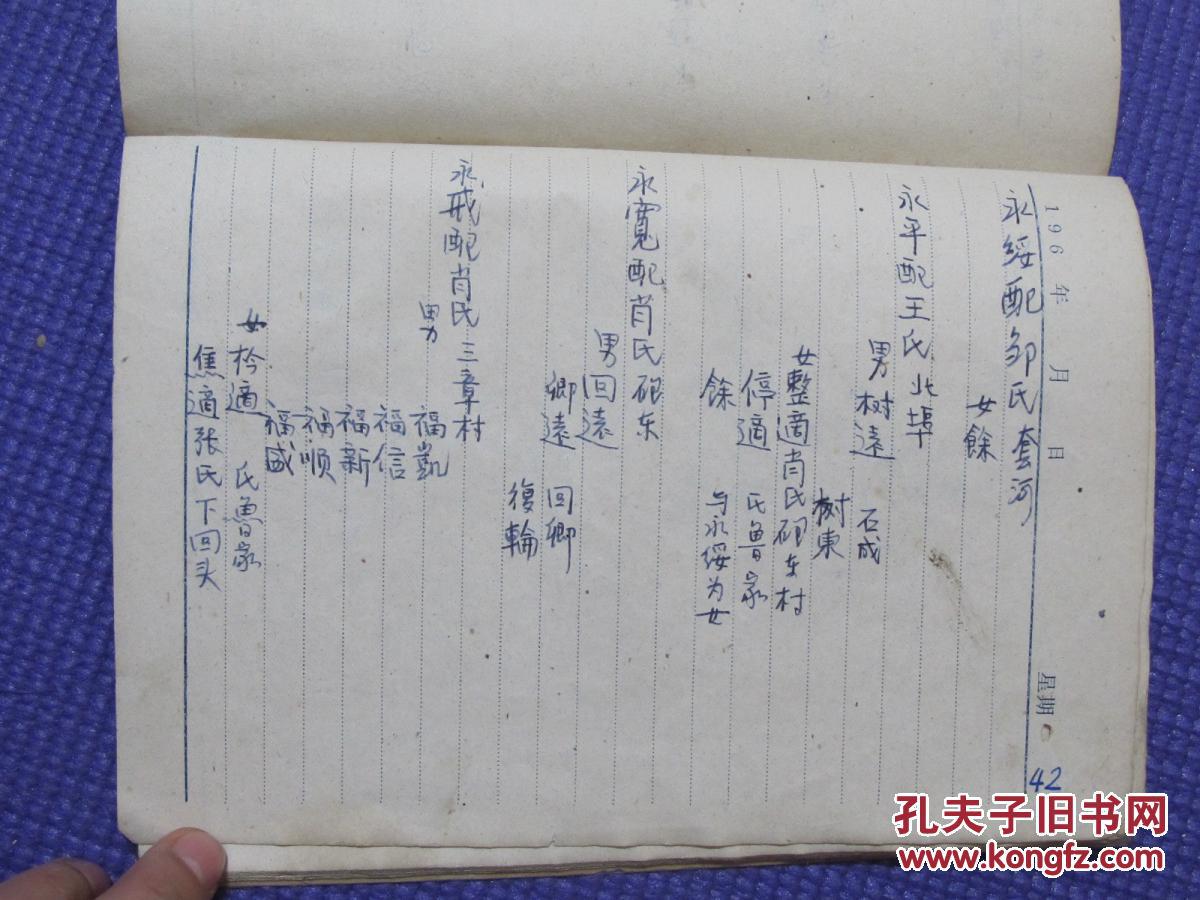 196 年 月 日 星期
42
永绥配邹氏套河
女餘
永平配王氏北埠
男树遠 石成
树東
女整適肖氏砚东村
停適 氏魯家
餘 与永绥为女
永寬配肖氏砚东
男回遠
卿遠 回卿
復輪
永戒配肖氏三章村
男 福凱
福信
福新
福顺
福盛
女枔適 氏魯家
焦適張氏下回头
孔夫子旧书网
www.kongfz.com